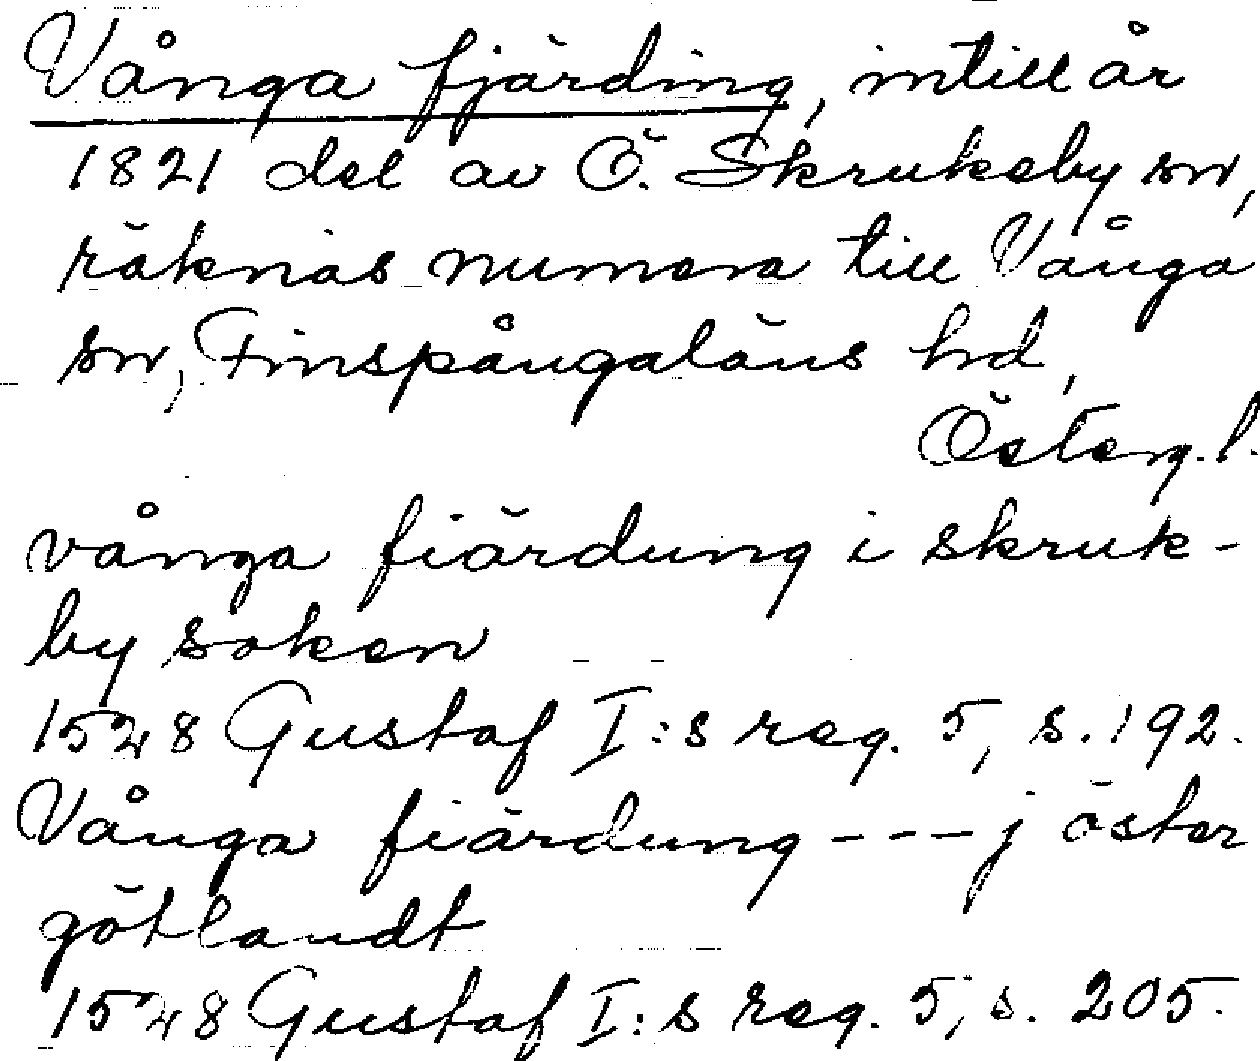 Vånga fjärding, intill år
1821 del av Ö. Skrukeby sn,
räknas numera till Vånga
sn, Finspångaläns hd,
Österg. l.
vånga fiärdung i skruk-
by soken
1528 Gustaf I:s reg. 5, s. 192.
Vånga fiärdung - - - j öster
götlandt
1528 Gustaf I:s reg. 5, s. 205.